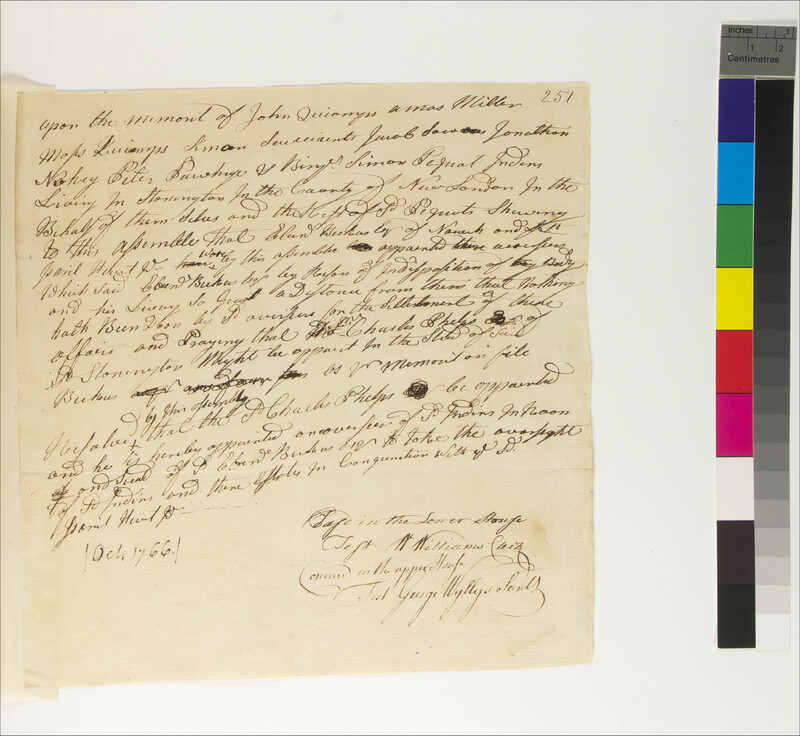 251
upon the memont of John Quiomps amos Miller
Moses Quiomps Simon Jacob Sowas Jonathan
Nokey Peter & Binjn. Simon Pequal Indins
Living In Stonington In the County of New London In the
Behalf of them Selves and the Rest of Sd Pequots Shewing
To this Assemble that Ebenr Backus Esqr of Norwich and
Isaril Huwit Jr were by this assemble appointed overseers
Which said Ebenr Backus Esqr by Reson of Indisposition of Body
and his Living So Great a Distance from them that Nothing
hath Been Don by Sd overseers for the Settlement of there
affairs and Praying that Mr Charles Phelps of
Sd Stonington Might be appoint In the Stead of Said
Backus as pr Memont on file
by this assembly
Resolved that the Sd Charles Phelps be appointed
and he is hereby appointed an overseers of Sd Indins In Room
and Stead of Sd Ebenr Backus Esqr to take the oversight
of Sd Indins and there Estates In Conjunction With ye Sd.
Isaril Huwit Jr
Past in the Lower House
Test W Williams Clerk
[Oct. 1766.]
Concurrd in the upper House
Test George Wyllys Secrety
Inches 1
1 2
Centimetres